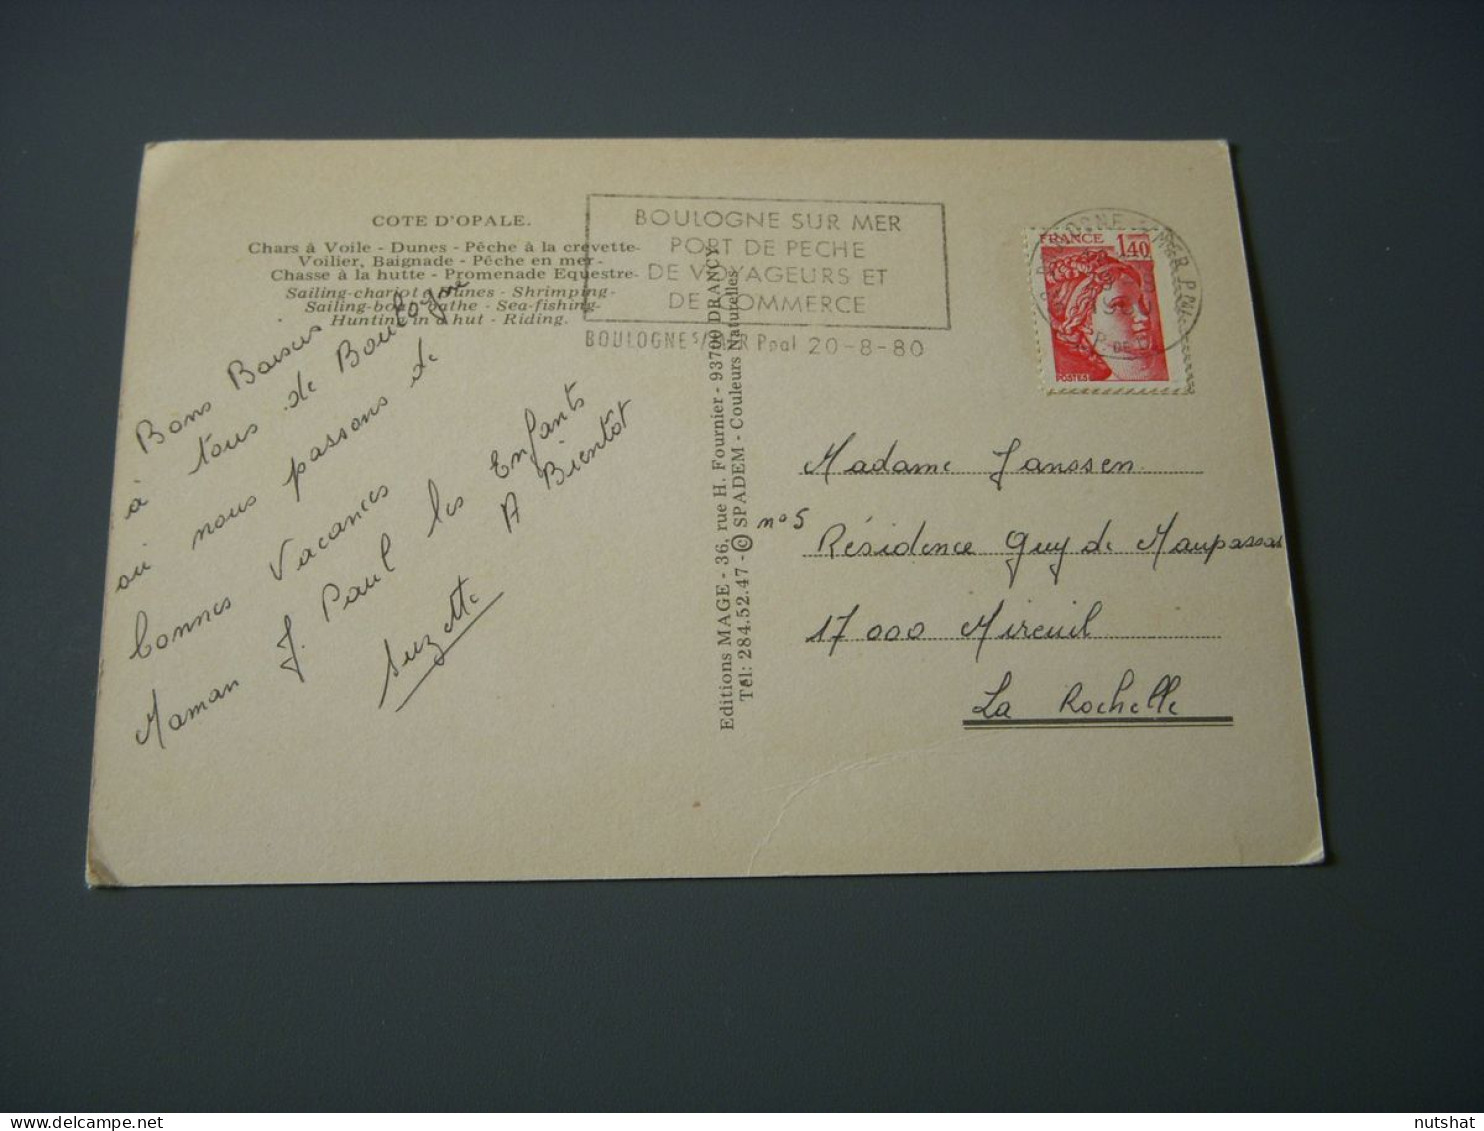 COTE D'OPALE.
Chars à Voile - Dunes - Pêche à la crevette-
Voilier, Baignade - Pêche en mer-
Chasse à la hutte - Promenade Equestre-
Sailing-chariot - Dunes - Shrimping-
Sailing-boat, bathe - Sea-fishing-
Hunting in a hut - Riding.
BOULOGNE SUR MER
PORT DE PECHE
DE VOYAGEURS ET
DE COMMERCE
BOULOGNE S/MER Ppal 20-8-80
FRANCE 1,40
POSTES
Bons Baisers
à tous de Boulogne
ou nous passons de
bonnes Vacances
Maman J. Paul les Enfants
Suzette A Bientot
Editions MAGE - 36, rue H. Fournier - 93700 DRANCY.
Tél: 284.52.47 - © SPADEM - Couleurs Naturelles
Madame Janssen
n°5 Résidence Guy de Maupassan
17 000 Mireuil
La Rochelle
nutshat
delcampe.net